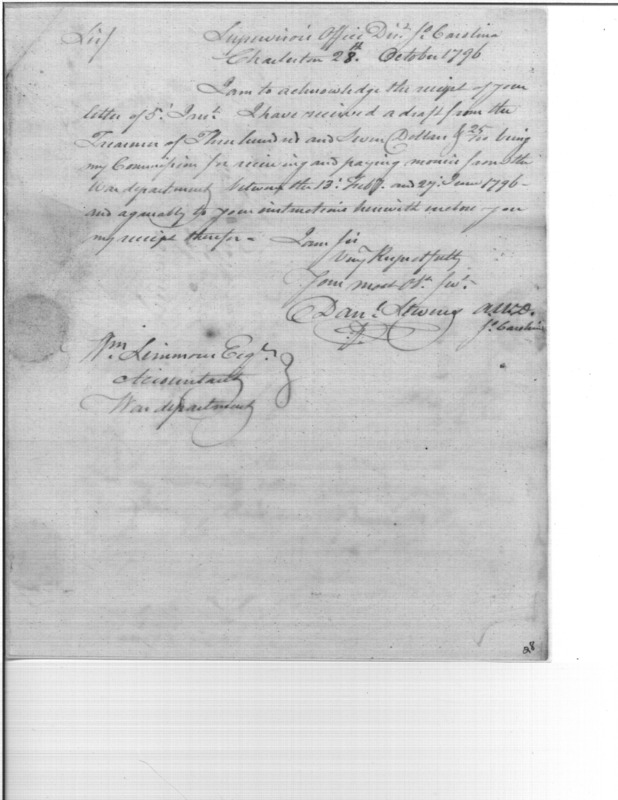 Sir/ Supervisors Office Dist. So. Carolina
Charleston 28th. October 1796
I am to acknowledge the receipt of your
letter of 5t. Inst. I have received a draft from the
Treasurer of Three hundred and Seven Dollars & 25/100 being
my Commission for receiving and paying monies from the
War department between the 13t. Feby. and 27t. June 1796 -
and agreeably to your instructions herewith enclose you
my receipt therefor - I am Sir
Very Respectfully
Your most Ob. Sevt.
Danl. Stevens
So. Carolina
Wm Simmons Esqr.
Accountant
War department
28